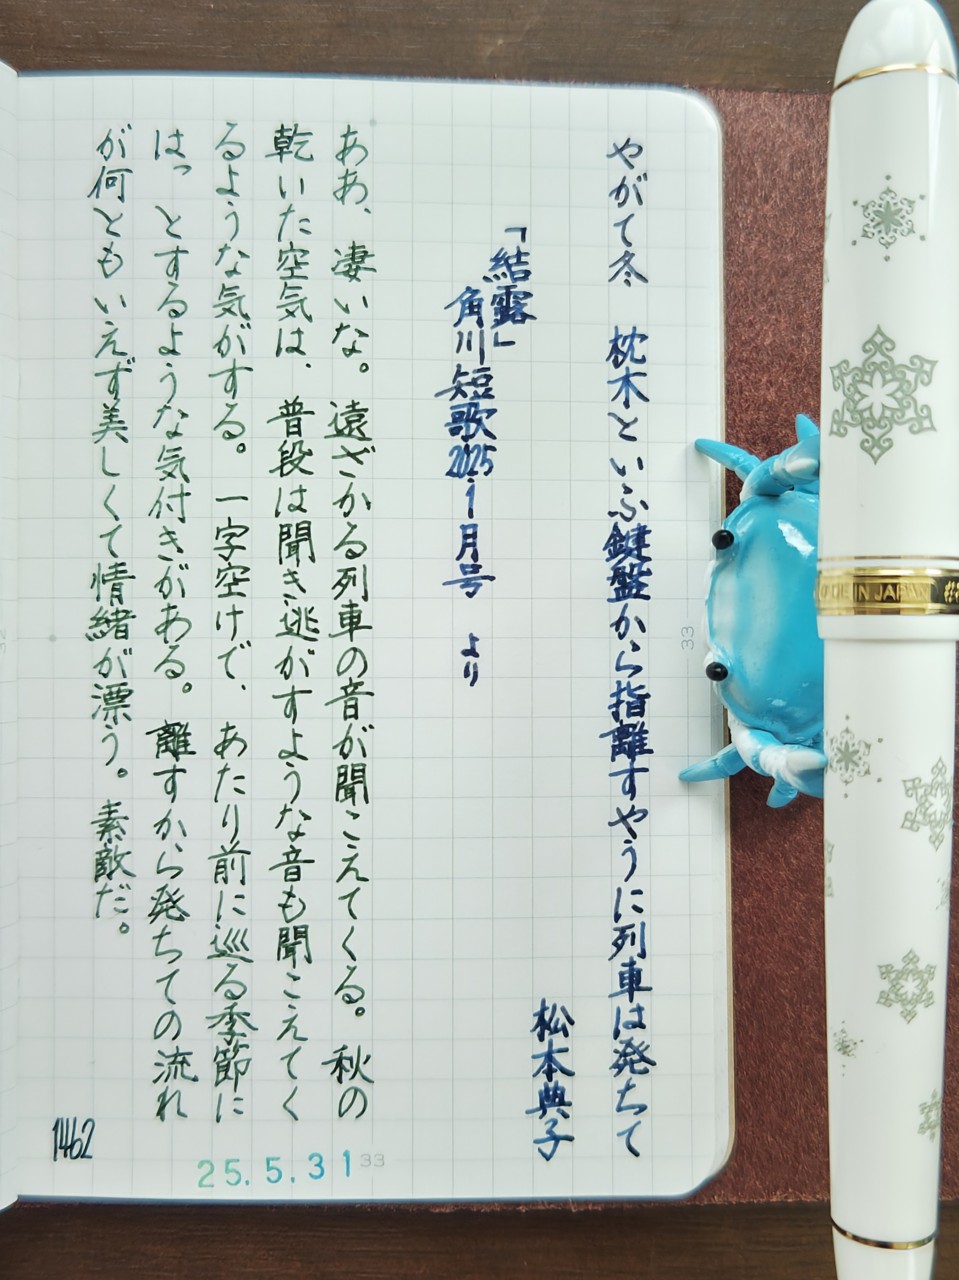 やがて冬　枕木といふ鍵盤から指離すやうに列車は発ちて
松本典子
「結露」
角川短歌2025.1月号　より
ああ、凄いな。遠ざかる列車の音が聞こえてくる。秋の
乾いた空気は、普段は聞き逃がすような音も聞こえてく
るような気がする。一字空けで、あたり前に巡る季節に
はっとするような気付きがある。離すから発ちての流れ
が何ともいえず美しくて情緒が漂う。素敵だ。
1462
25.5.31
33
33
DE IN JAPAN